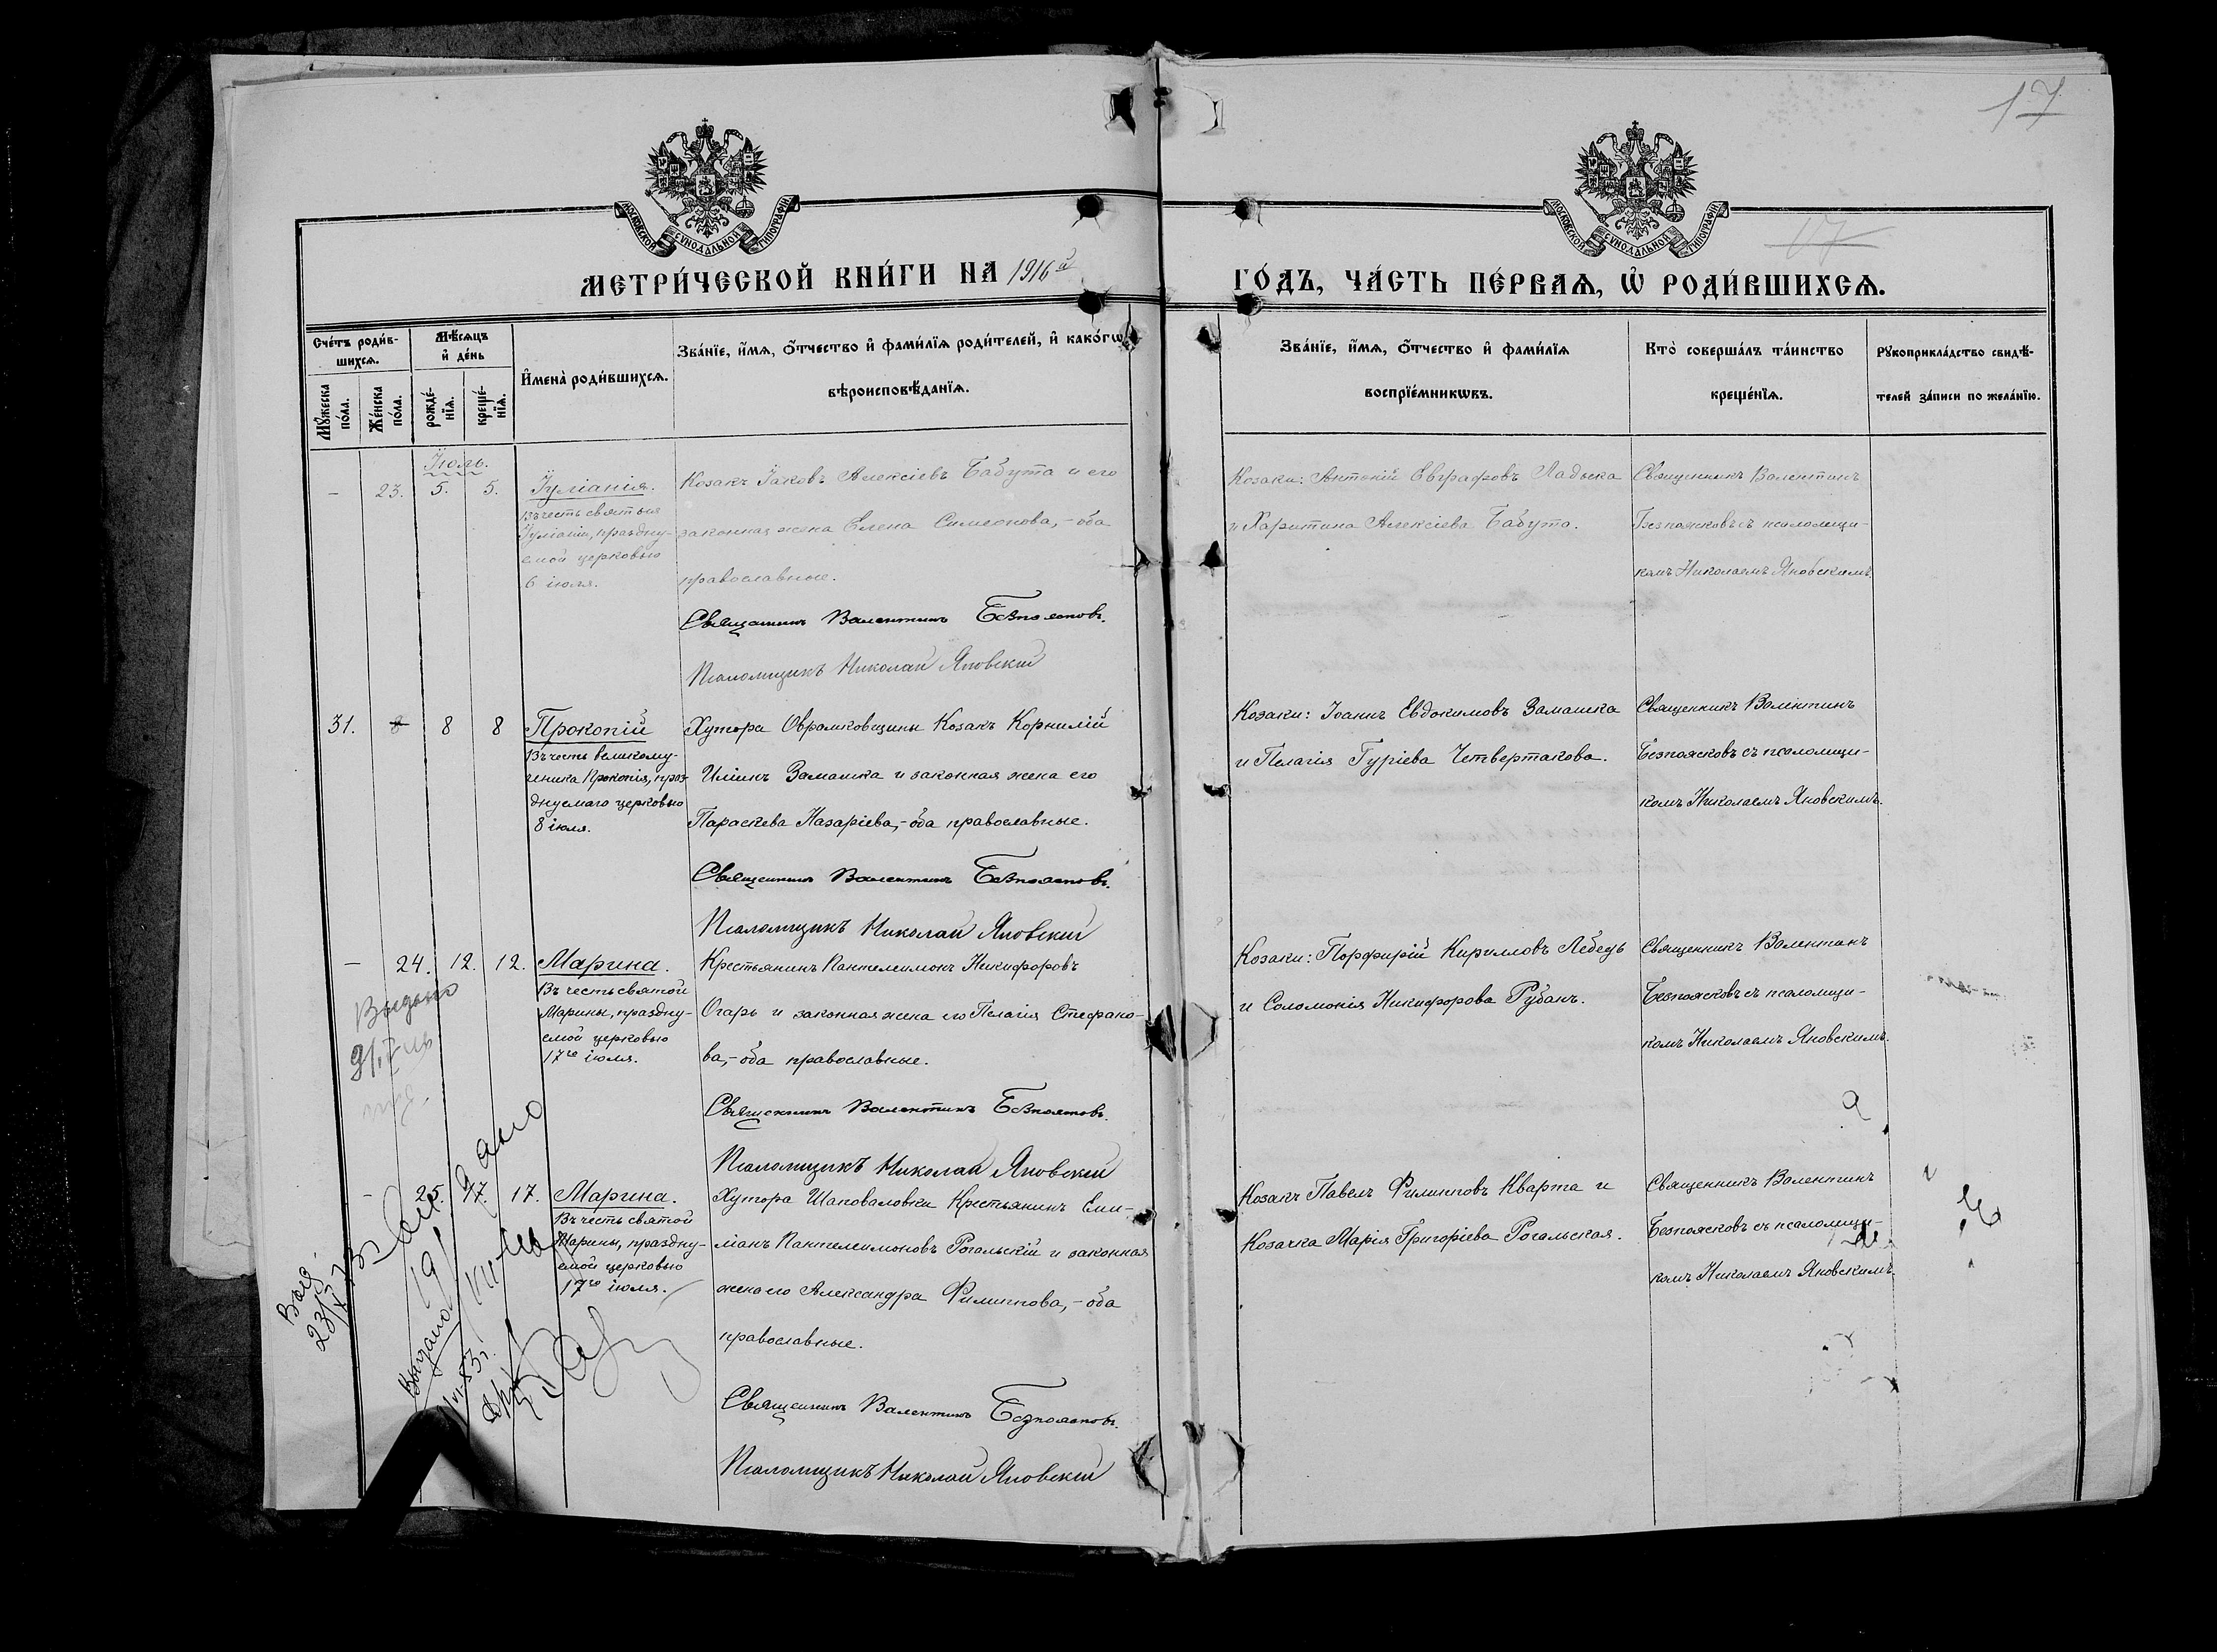 17
МОСКОВСКОЙ СѴНОДАЛЬНОЙ ТИПОГРАФІИ
МОСКОВСКОЙ СѴНОДАЛЬНОЙ ТИПОГРАФІИ
17
МЕТРИ́ЧЕСКОЙ КНИ́ГИ НА 1916й
ГО́ДЪ, ЧА́СТЬ ПЕ́РВАѦ, Ѡ҆ РОДИ́ВШИХСѦ.
Сче́тъ роди́в-
шихсѧ.
Мѣ́сѧцъ
и҆ де́нь
Мꙋ́жеска
по́ла.
Же́нска
по́ла.
рожде́-
нїѧ.
креще́-
нїѧ.
И҆мена̀ роди́вшихсѧ.
Зва́нїе, и҆́мѧ, ѻ҆́тчество и҆ фами́лїѧ роди́телей, и҆ како́гѡ
вѣроисповѣ́данїѧ.
Зва́нїе, и҆́мѧ, ѻ҆́тчество и҆ фами́лїѧ
воспрїе́мникѡвъ.
Кто̀ соверша́лъ та́инство
креще́нїѧ.
Рꙋкоприкла́дство свидѣ́-
телей за́писи по жела́нїю.
Іюль.
- 23. 5. 5.
Іуліанія.
Въ честь святыя
Іуліаніи, праздну-
емой церковью
6 іюля.
Козакъ Іаковъ Алексіевъ Бабута и его
законная жена Елена Симеонова, - оба
православные.
Священникъ Валентинъ Безпоясковъ.
Псаломщикъ Николай Яновскій
Козаки: Антоній Евграфовъ Ладыка
и Харитина Алексіева Бабута.
Священникъ Валентинъ
Безпоясковъ съ псаломщи-
комъ Николаемъ Яновскимъ
31. 8 8 8
Прокопій
Въ честь великому-
ченика Прокопія, праз-
днуемаго церковью
8 іюля.
Хутора Оврамковщины Козакъ Корнилій
Иліинъ Замашка и законная жена его
Параскева Назаріева, - оба православные.
Священникъ Валентинъ Безпоясковъ.
Псаломщикъ Николай Яновскій
Козаки: Іоаннъ Евдокимовъ Замашка
и Пелагія Гуріева Четвертакова.
Священникъ Валентинъ
Безпоясковъ съ псаломщи-
комъ Николаемъ Яновскимъ.
- 24. 12. 12.
Марина.
Въ честь святой
Марины, праздну-
емой церковью
17го іюля.
Крестьянинъ Пантелеимонъ Никифоровъ
Огарь и законная жена его Пелагія Стефано-
ва, - оба православные.
Священникъ Валентинъ Безпоясковъ.
Псаломщикъ Николай Яновскій
Козаки: Порфирій Кирилловъ Лебедь
и Соломонія Никифорова Рубанъ.
Священникъ Валентинъ
Безпоясковъ съ псаломщи-
комъ Николаемъ Яновскимъ.
Выдано
- 25. 17. 17.
Марина.
Въ честь святой
Марины, праздну-
емой церковью
17го іюля.
Хутора Шаповаловки Крестьянинъ Еми-
ліанъ Пантелеимоновъ Рогальскій и законная
жена его Александра Филиппова, - оба
православные.
Священникъ Валентинъ Безпоясковъ.
Псаломщикъ Николай Яновскій
Козакъ Павелъ Филипповъ Кварта и
Козачка Марія Григоріева Рогальская.
Священникъ Валентинъ
Безпоясковъ съ псаломщи-
комъ Николаемъ Яновскимъ.
Выдано